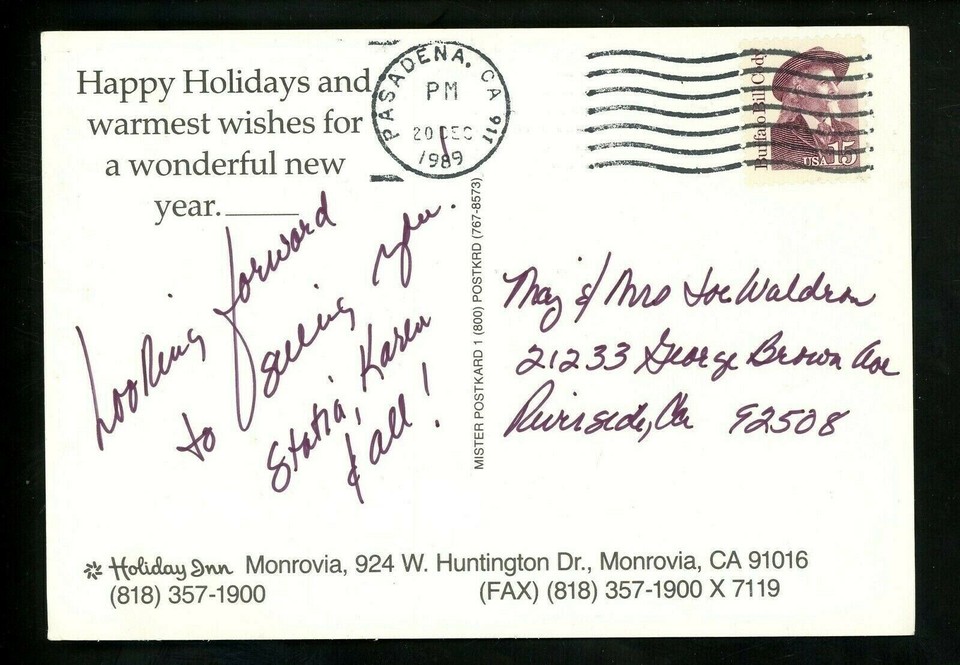 Happy Holidays and
warmest wishes for
a wonderful new
year.
Looking forward
to seeing you.
Statia, Karen
& all!
PASADENA, CA 911
PM
20 DEC
1989
Buffalo Bill Cody
USA 15
MISTER POSTKARD 1 (800) POSTKRD (767-8573)
Maj & Mrs Joe Waldron
21233 George Brown Ave
Riverside, Ca 92508
Holiday Inn Monrovia, 924 W. Huntington Dr., Monrovia, CA 91016
(818) 357-1900 (FAX) (818) 357-1900 X 7119